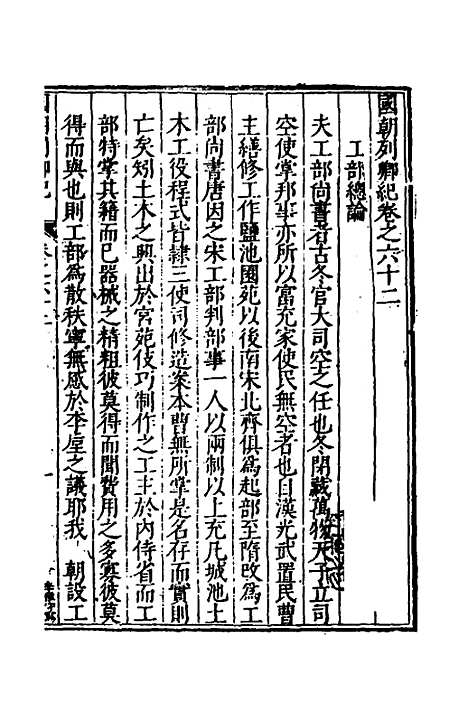 國朝列卿紀卷之六十二
工部總論
夫工部尚書者古冬官大司空之任也冬閉藏萬物天子立司
空使掌邦事亦所以富充家使民無空者也自漢光武置民曹
主繕修工作鹽池園苑以後南宋北齊俱爲起部至隋改爲工
部尚書唐因之宋工部判部事一人以兩制以上充凡城池土
木工役程式皆隷三使司修造案本曹無所掌是名存而實則
亡矣矧土木之興出於宮苑伎巧制作之工主於內侍省而工
部特掌其籍而已器械之精粗彼莫得而聞費用之多寡彼莫
得而與也則工部爲散秩寧無感於李垕之議耶我 朝設工